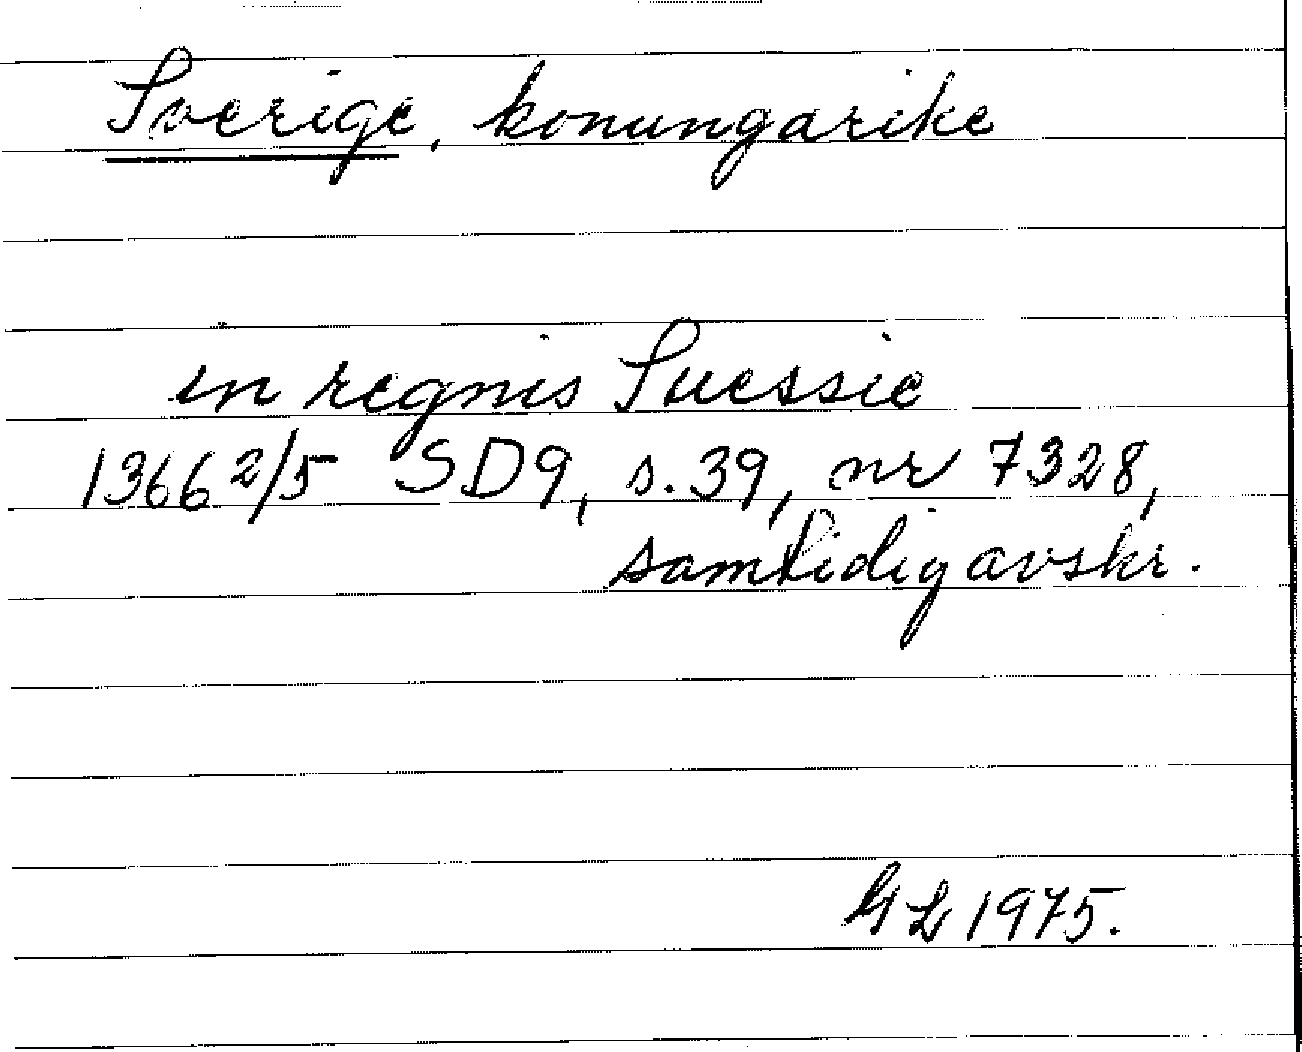 Sverige, konungarike
in regnis Suessie
1366 2/5 SD9, s. 39, nr 7328,
samtidig avskr.
GL 1975.